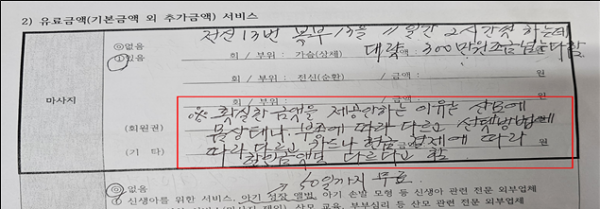 2) 유료금액(기본금액 외 추가금액) 서비스
전신 13번 복부 13틀 11일간 2시간씩 하는데
◎없음
대략 300만원 조금 넘는다 함
①있음
회 / 부위 : 가슴(상체) 금액 :
회 / 부위 : 전신(순환) / 금액 : 원
마사지
회 / 부위 : / 금액 : 원
※ 확실한 금액을 제공안하는 이유는 산모에
(회원권)
몸상태나, 부종에 따라 다르고 선택방법에
(기 타)
따라 다르고 카드나 현금 결제에 따라 원
할인금액도 다르다고 함
◎없음 → 50일까지 무료
① 신생아를 위한 서비스, 아기 성장 앨범, 아기 손발 모형 등 신생아 관련 전문 외부업체
산모 교육, 부부심리 등 산모 관련 전문 외부업체